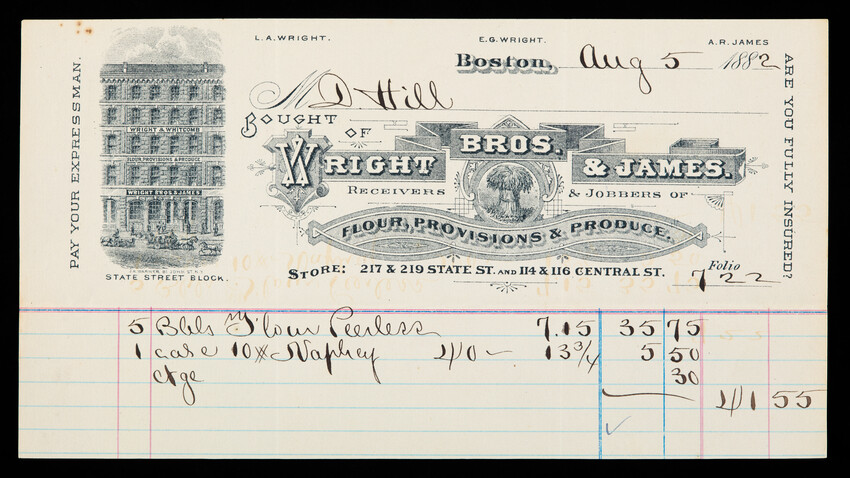 L.A. WRIGHT. E.G. WRIGHT. A.R. JAMES
Boston, Aug 5 1882
M D. Hill
BOUGHT OF
WRIGHT BROS. & JAMES.
RECEIVERS & JOBBERS OF
FLOUR, PROVISIONS & PRODUCE.
STORE: 217 & 219 STATE ST. AND 114 & 116 CENTRAL ST.
Folio
722
PAY YOUR EXPRESSMAN.
ARE YOU FULLY INSURED?
WRIGHT & WHITCOMB
FLOUR, PROVISIONS & PRODUCE
WRIGHT BROS & JAMES
STATE STREET BLOCK.
5 Bbls Flour Peerless 7.15 35 75
1 case 10# Naphey 40 - 13 3/4 5 50
ctge 30
41 55